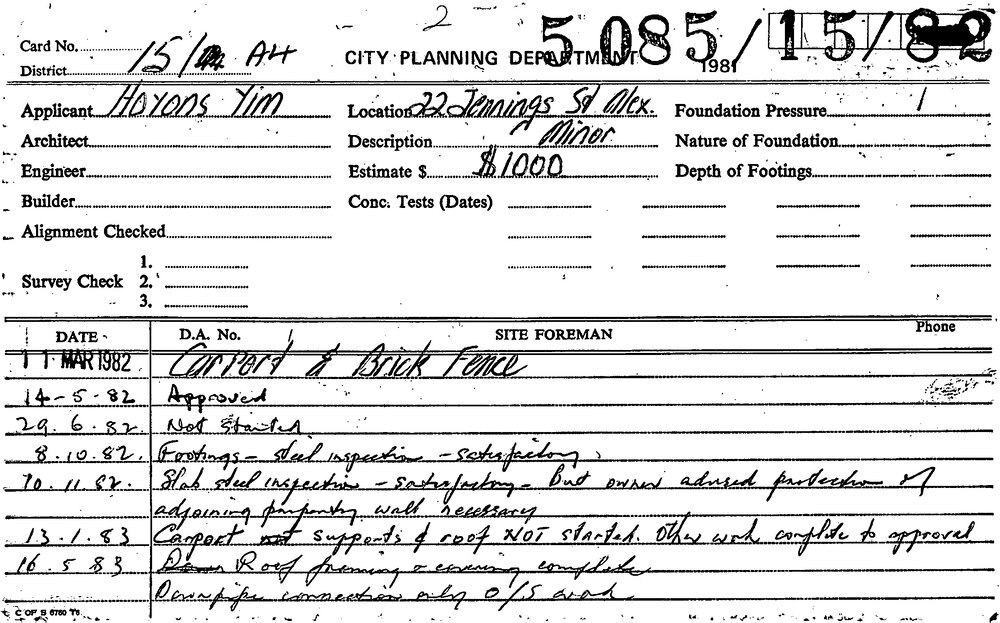 2
5085/15/82
Card No. 15/ A4
CITY PLANNING DEPARTMENT 1981
District
Applicant Hoyons Yim Location 22 Jennings St Alex. Foundation Pressure
Architect Description Minor Nature of Foundation
Engineer Estimate $ $1000 Depth of Footings
Builder Conc. Tests (Dates)
Alignment Checked
1.
Survey Check 2.
3.
DATE D.A. No. SITE FOREMAN Phone
11 MAR 1982 Carport & Brick Fence
14-5-82 Approved
29.6.82. Not started
8.10.82. Footings - steel inspection - satisfactory.
10.11.82. Slab steel inspection - satisfactory - But owner advised protection of
adjoining property wall necessary
13.1.83 Carport supports & roof NOT started. Other work complete to approval
16.5.83 Roof framing & covering complete
Downpipe connection only O/S work.
C OF S 6760 T6